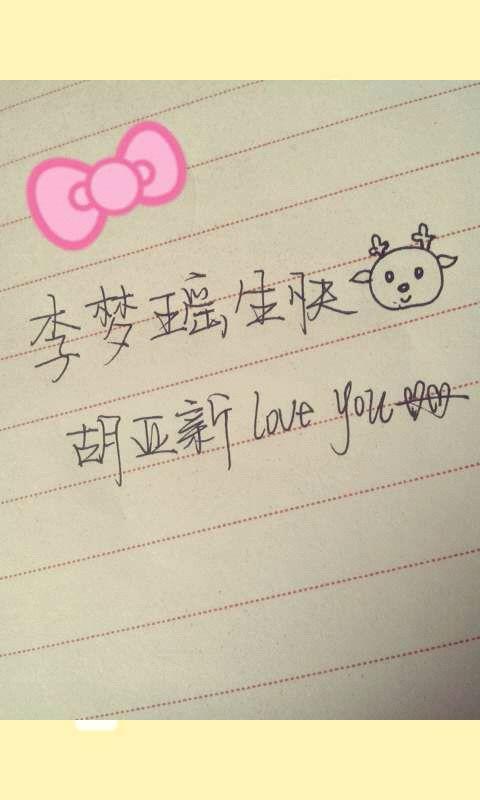 李梦瑶生快
胡亚新love you